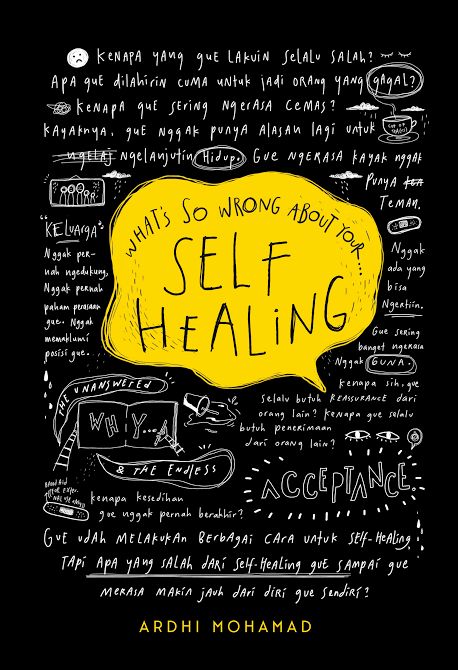 KENAPA YANG GUE LAKUIN SELALU SALAH?
APA GUE DILAHIRIN CUMA UNTUK JADI ORANG YANG GAGAL?
KENAPA GUE SERING NGERASA CEMAS?
KAYAKNYA, GUE NGGAK PUNYA ALASAN LAGI UNTUK
NGELAJ NGELANJUTIN HIDUP. GUE NGERASA KAYAK NGGAK
PUNYA TEMAN.
"KELUARGA"
NGGAK PER-
NAH NGEDUKUNG,
NGGAK PERNAH
PAHAM PERASAAN
GUE. NGGAK
MEMAKLUMI
POSISI GUE.
WHAT'S SO WRONG ABOUT YOUR...
SELF
HEALING
NGGAK
ADA YANG
BISA
NGERTIIN.
GUE SERING
BANGET NGERASA
NGGAK GUNA.
KENAPA SIH, GUE
SELALU BUTUH REASSURANCE DARI
ORANG LAIN? KENAPA GUE SELALU
BUTUH PENERIMAAN
DARI ORANG LAIN?
THE UNANSWERED
WHY...
& THE ENDLESS
ACCEPTANCE
KENAPA KESEDIHAN
GUE NGGAK PERNAH BERAKHIR?
GUE UDAH MELAKUKAN BERBAGAI CARA UNTUK SELF-HEALING,
TAPI APA YANG SALAH DARI SELF-HEALING GUE SAMPAI GUE
MERASA MAKIN JAUH DARI DIRI GUE SENDIRI?
ARDHI MOHAMAD